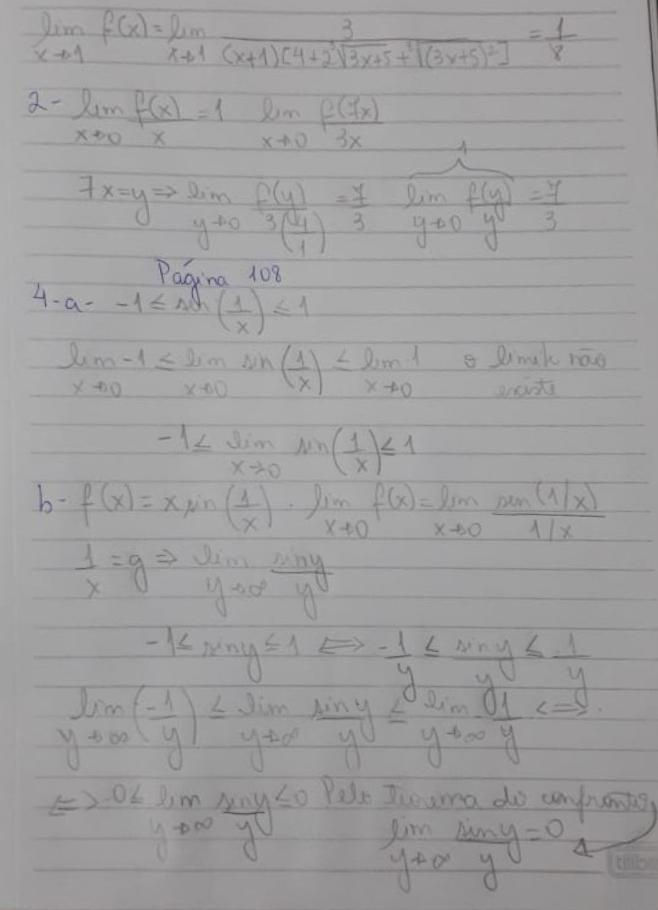 lim x→1 f(x) = lim x→1 3/((x+1)[4+2∛(3x+5)+∛((3x+5)²)]) = 1/8
2- lim x→0 f(x)/x = 1 lim x→0 f(7x)/3x
1
7x=y ⇒ lim y→0 f(y)/(3(y/1)) = 7/3 lim y→0 f(y)/y = 7/3
Página 108
4-a- -1 ≤ sin(1/x) ≤ 1
lim x→0 -1 ≤ lim x→0 sin(1/x) ≤ lim x→0 1 o limite não
existe
-1 ≤ lim x→0 sin(1/x) ≤ 1
b- f(x) = x sin(1/x). lim x→0 f(x) = lim x→0 sen(1/x)/(1/x)
1/x = y ⇒ lim y→∞ sin y/y
-1 ≤ sin y ≤ 1 ⟺ -1/y ≤ sin y/y ≤ 1/y
lim y→∞ (-1/y) ≤ lim y→∞ sin y/y ≤ lim y→∞ 1/y <=>.
<=> -0 ≤ lim y→∞ sin y/y ≤ 0 Pelo Teorema do confronto,
lim y→∞ sin y/y = 0